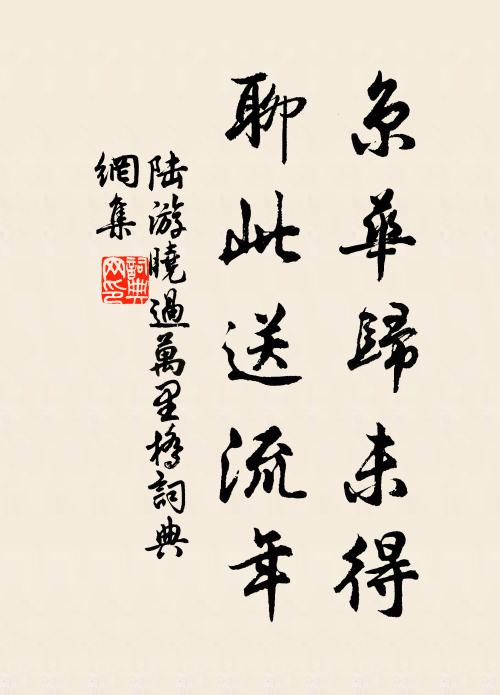 京華歸未得
聊此送流年
陸游曉過萬里橋詞典
網集
詞典
网印